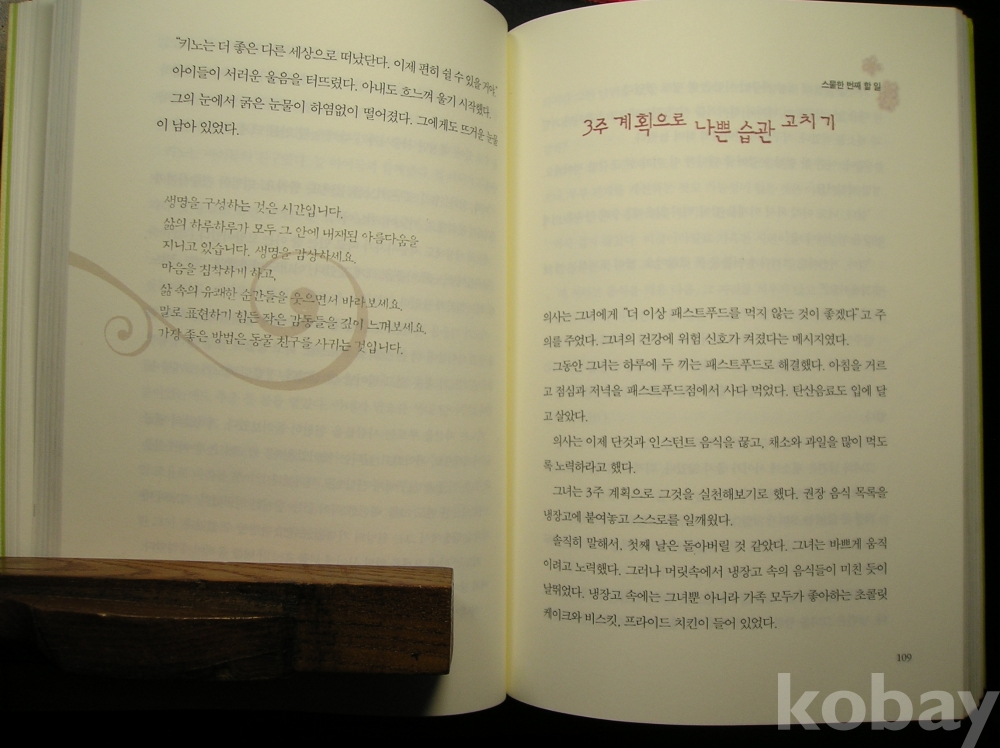 “키노는 더 좋은 다른 세상으로 떠났단다. 이제 편히 쉴 수 있을 거야.”
아이들이 서러운 울음을 터뜨렸다. 아내도 흐느껴 울기 시작했다.
그의 눈에서 굵은 눈물이 하염없이 떨어졌다. 그에게도 뜨거운 눈물
이 남아 있었다.
생명을 구성하는 것은 시간입니다.
삶의 하루하루가 모두 그 안에 내재된 아름다움을
지니고 있습니다. 생명을 감상하세요.
마음을 침착하게 하고,
삶 속의 유쾌한 순간들을 웃으면서 바라보세요.
말로 표현하기 힘든 작은 감동들을 깊이 느껴보세요.
가장 좋은 방법은 동물 친구를 사귀는 것입니다.
스물한 번째 할 일
3주 계획으로 나쁜 습관 고치기
의사는 그녀에게 “더 이상 패스트푸드를 먹지 않는 것이 좋겠다”고 주
의를 주었다. 그녀의 건강에 위험 신호가 켜졌다는 메시지였다.
그동안 그녀는 하루에 두 끼는 패스트푸드로 해결했다. 아침을 거르
고 점심과 저녁을 패스트푸드점에서 사다 먹었다. 탄산음료도 입에 달
고 살았다.
의사는 이제 단것과 인스턴트 음식을 끊고, 채소와 과일을 많이 먹도
록 노력하라고 했다.
그녀는 3주 계획으로 그것을 실천해보기로 했다. 권장 음식 목록을
냉장고에 붙여놓고 스스로를 일깨웠다.
솔직히 말해서, 첫째 날은 돌아버릴 것 같았다. 그녀는 바쁘게 움직
이려고 노력했다. 그러나 머릿속에서 냉장고 속의 음식들이 미친 듯이
날뛰었다. 냉장고 속에는 그녀뿐 아니라 가족 모두가 좋아하는 초콜릿
케이크와 비스킷, 프라이드 치킨이 들어 있었다.
109
kobay